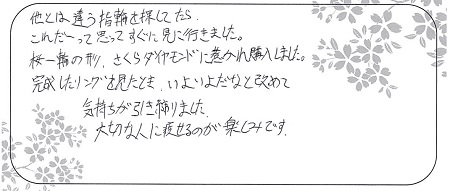 他とは違う指輪を探してたら、
これだーって思ってすぐに見に行きました。
桜一輪の形、さくらダイヤモンドに惹かれ購入しました。
完成したリングを見たとき、いよいよだなと改めて
気持ちが引き締りました。
大切な人に渡せるのが楽しみです。